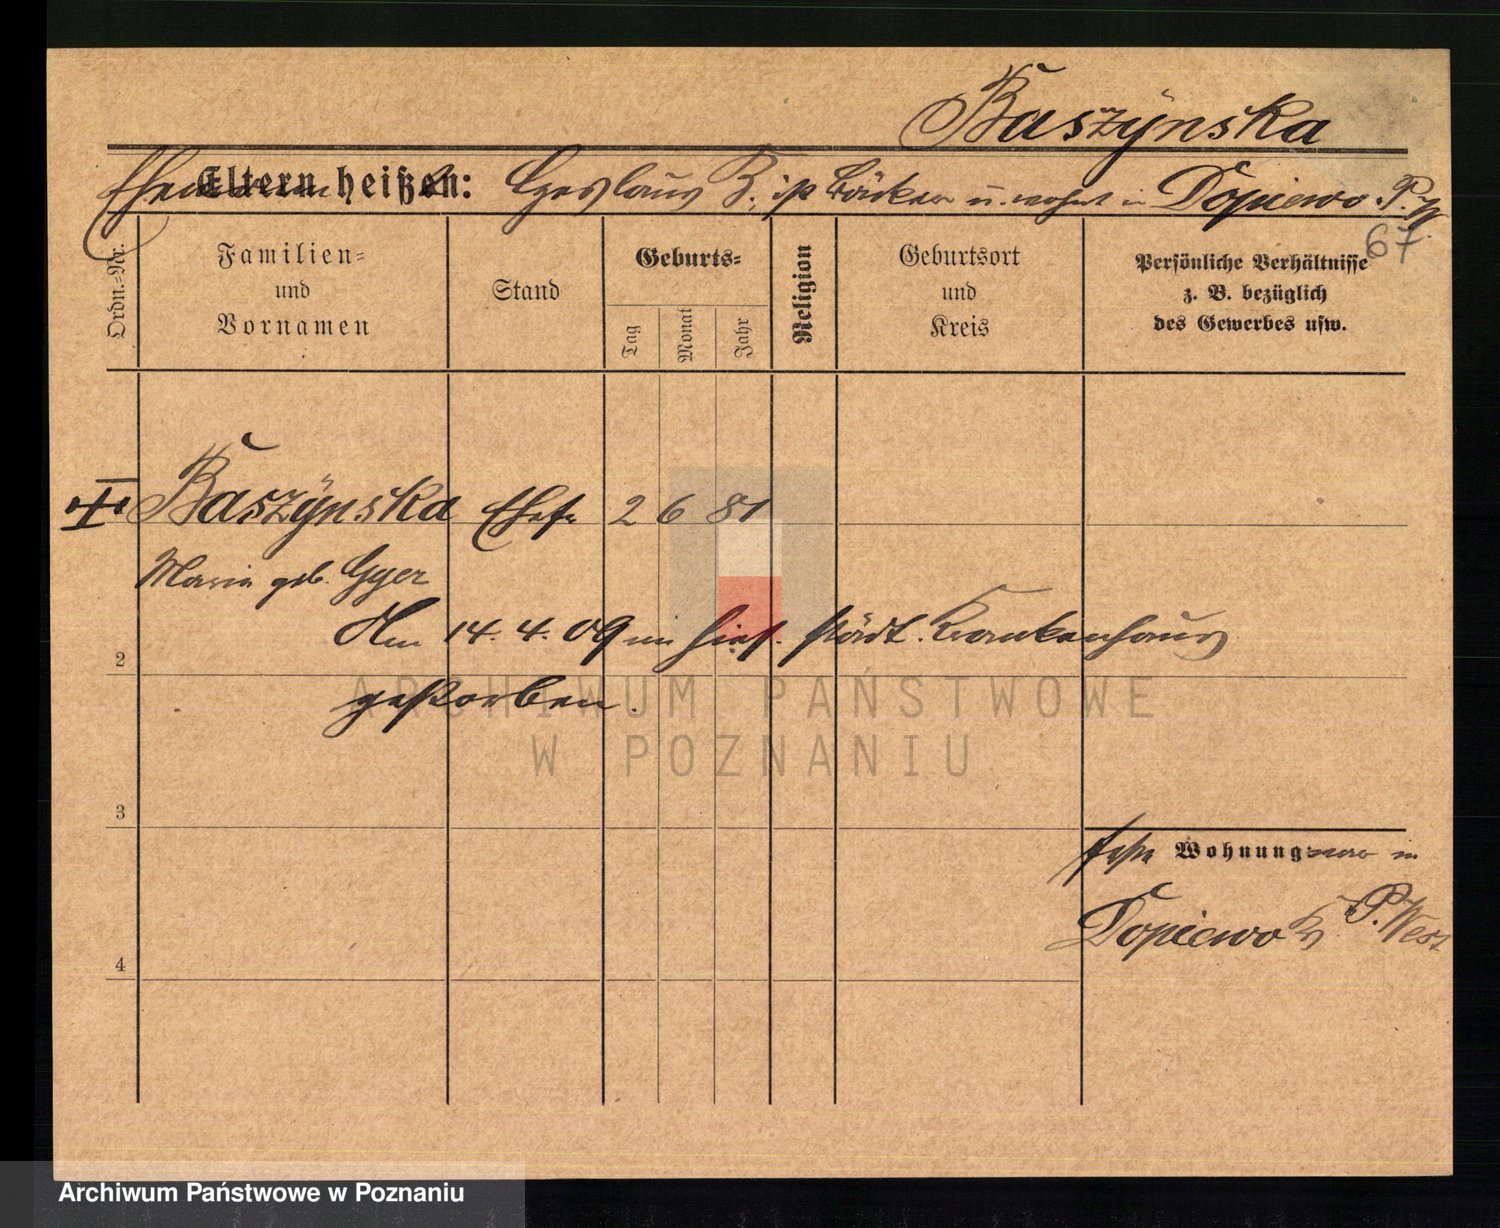 Baszynska
Ehemann Eltern heißen: Czeslaus B. ist Bäcker u. wohnt in Dopiewo P. W.
67
Ordn.-Nr.
Familien-
und
Vornamen
Stand
Geburts-
Tag
Monat
Jahr
Religion
Geburtsort
und
Kreis
Persönliche Verhältnisse
z. B. bezüglich
des Gewerbes usw.
Baszynska Ehefr 2 6 81
Maria geb. Gyer
Am 14. 4. 09 im hies. städt. Krankenhaus
2
gestorben.
ARCHIWUM PAŃSTWOWE
W POZNANIU
3
Wohnung in
Dopiewo P. West
4
Archiwum Państwowe w Poznaniu